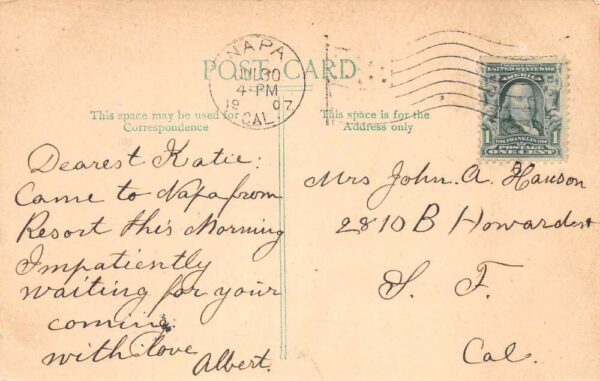 POST CARD
NAPA
JUL 30
4-PM
1907
CAL.
This space may be used for
Correspondence
This space is for the
Address only
UNITED STATES OF
AMERICA
1 FRANKLIN 1
POSTAGE
ONE CENT
Dearest Katie:
Came to Napa from
Resort this Morning
Impatiently
waiting for your
coming
with love
Albert.
Mrs John. A. Hanson
2810 B Howard st
S. F.
Cal.